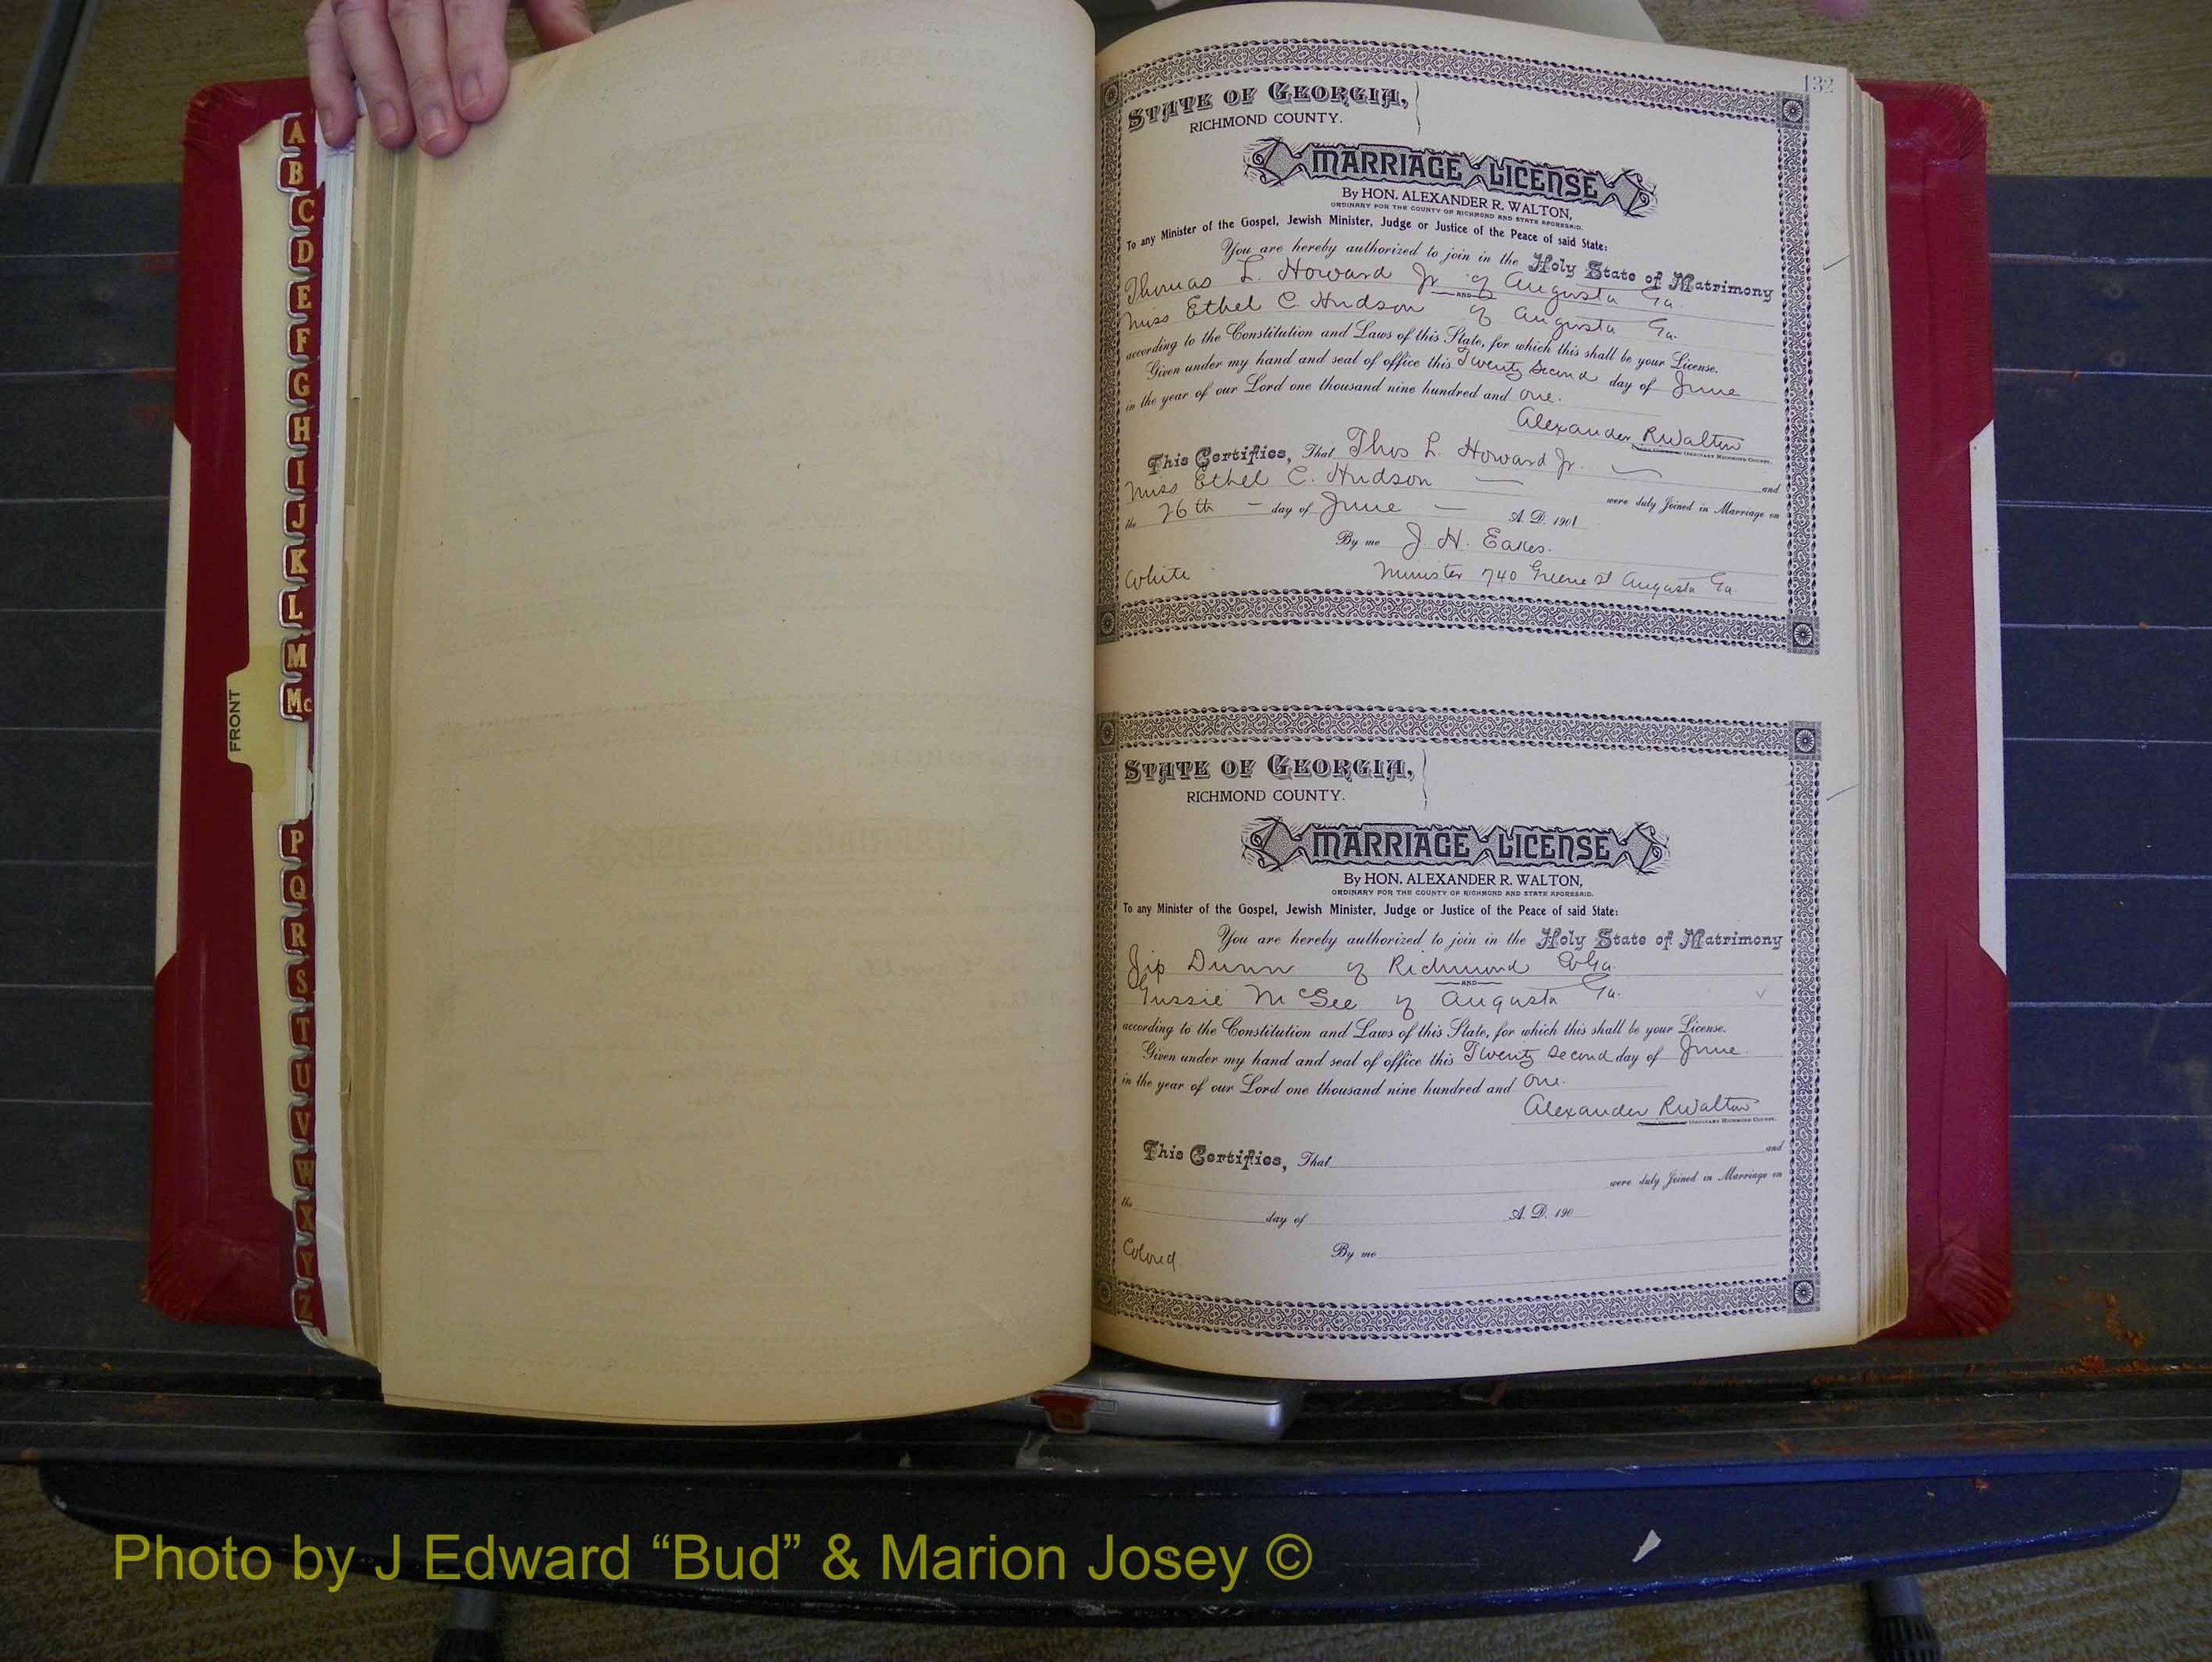 A
B
C
D
E
F
G
H
I
J
K
L
M
Mc
FRONT
P
Q
R
S
T
U
V
W
X
Y
Z
132
STATE OF GEORGIA,
RICHMOND COUNTY.
MARRIAGE LICENSE
By HON. ALEXANDER R. WALTON,
ORDINARY FOR THE COUNTY OF RICHMOND AND STATE AFORESAID.
To any Minister of the Gospel, Jewish Minister, Judge or Justice of the Peace of said State:
You are hereby authorized to join in the Holy State of Matrimony
Thomas L. Howard Jr of Augusta Ga.
AND
Miss Ethel C. Hudson of Augusta Ga.
according to the Constitution and Laws of this State, for which this shall be your License.
Given under my hand and seal of office this Twenty Second day of June
in the year of our Lord one thousand nine hundred and one.
Alexander R Walton
ORDINARY RICHMOND COUNTY.
This Certifies, That Thos L. Howard Jr. and
Miss Ethel C. Hudson were duly Joined in Marriage on
the 26th day of June A. D. 1901
By me J. H. Eakes.
White Minister 740 Greene St Augusta Ga.
STATE OF GEORGIA,
RICHMOND COUNTY.
MARRIAGE LICENSE
By HON. ALEXANDER R. WALTON,
ORDINARY FOR THE COUNTY OF RICHMOND AND STATE AFORESAID.
To any Minister of the Gospel, Jewish Minister, Judge or Justice of the Peace of said State:
You are hereby authorized to join in the Holy State of Matrimony
Jip Dunn of Richmond Co Ga
AND
Gussie McGee of Augusta Ga.
according to the Constitution and Laws of this State, for which this shall be your License.
Given under my hand and seal of office this Twenty Second day of June
in the year of our Lord one thousand nine hundred and one.
Alexander R Walton
ORDINARY RICHMOND COUNTY.
This Certifies, That and
were duly Joined in Marriage on
the day of A. D. 190
Colored. By me
Photo by J Edward “Bud” & Marion Josey ©